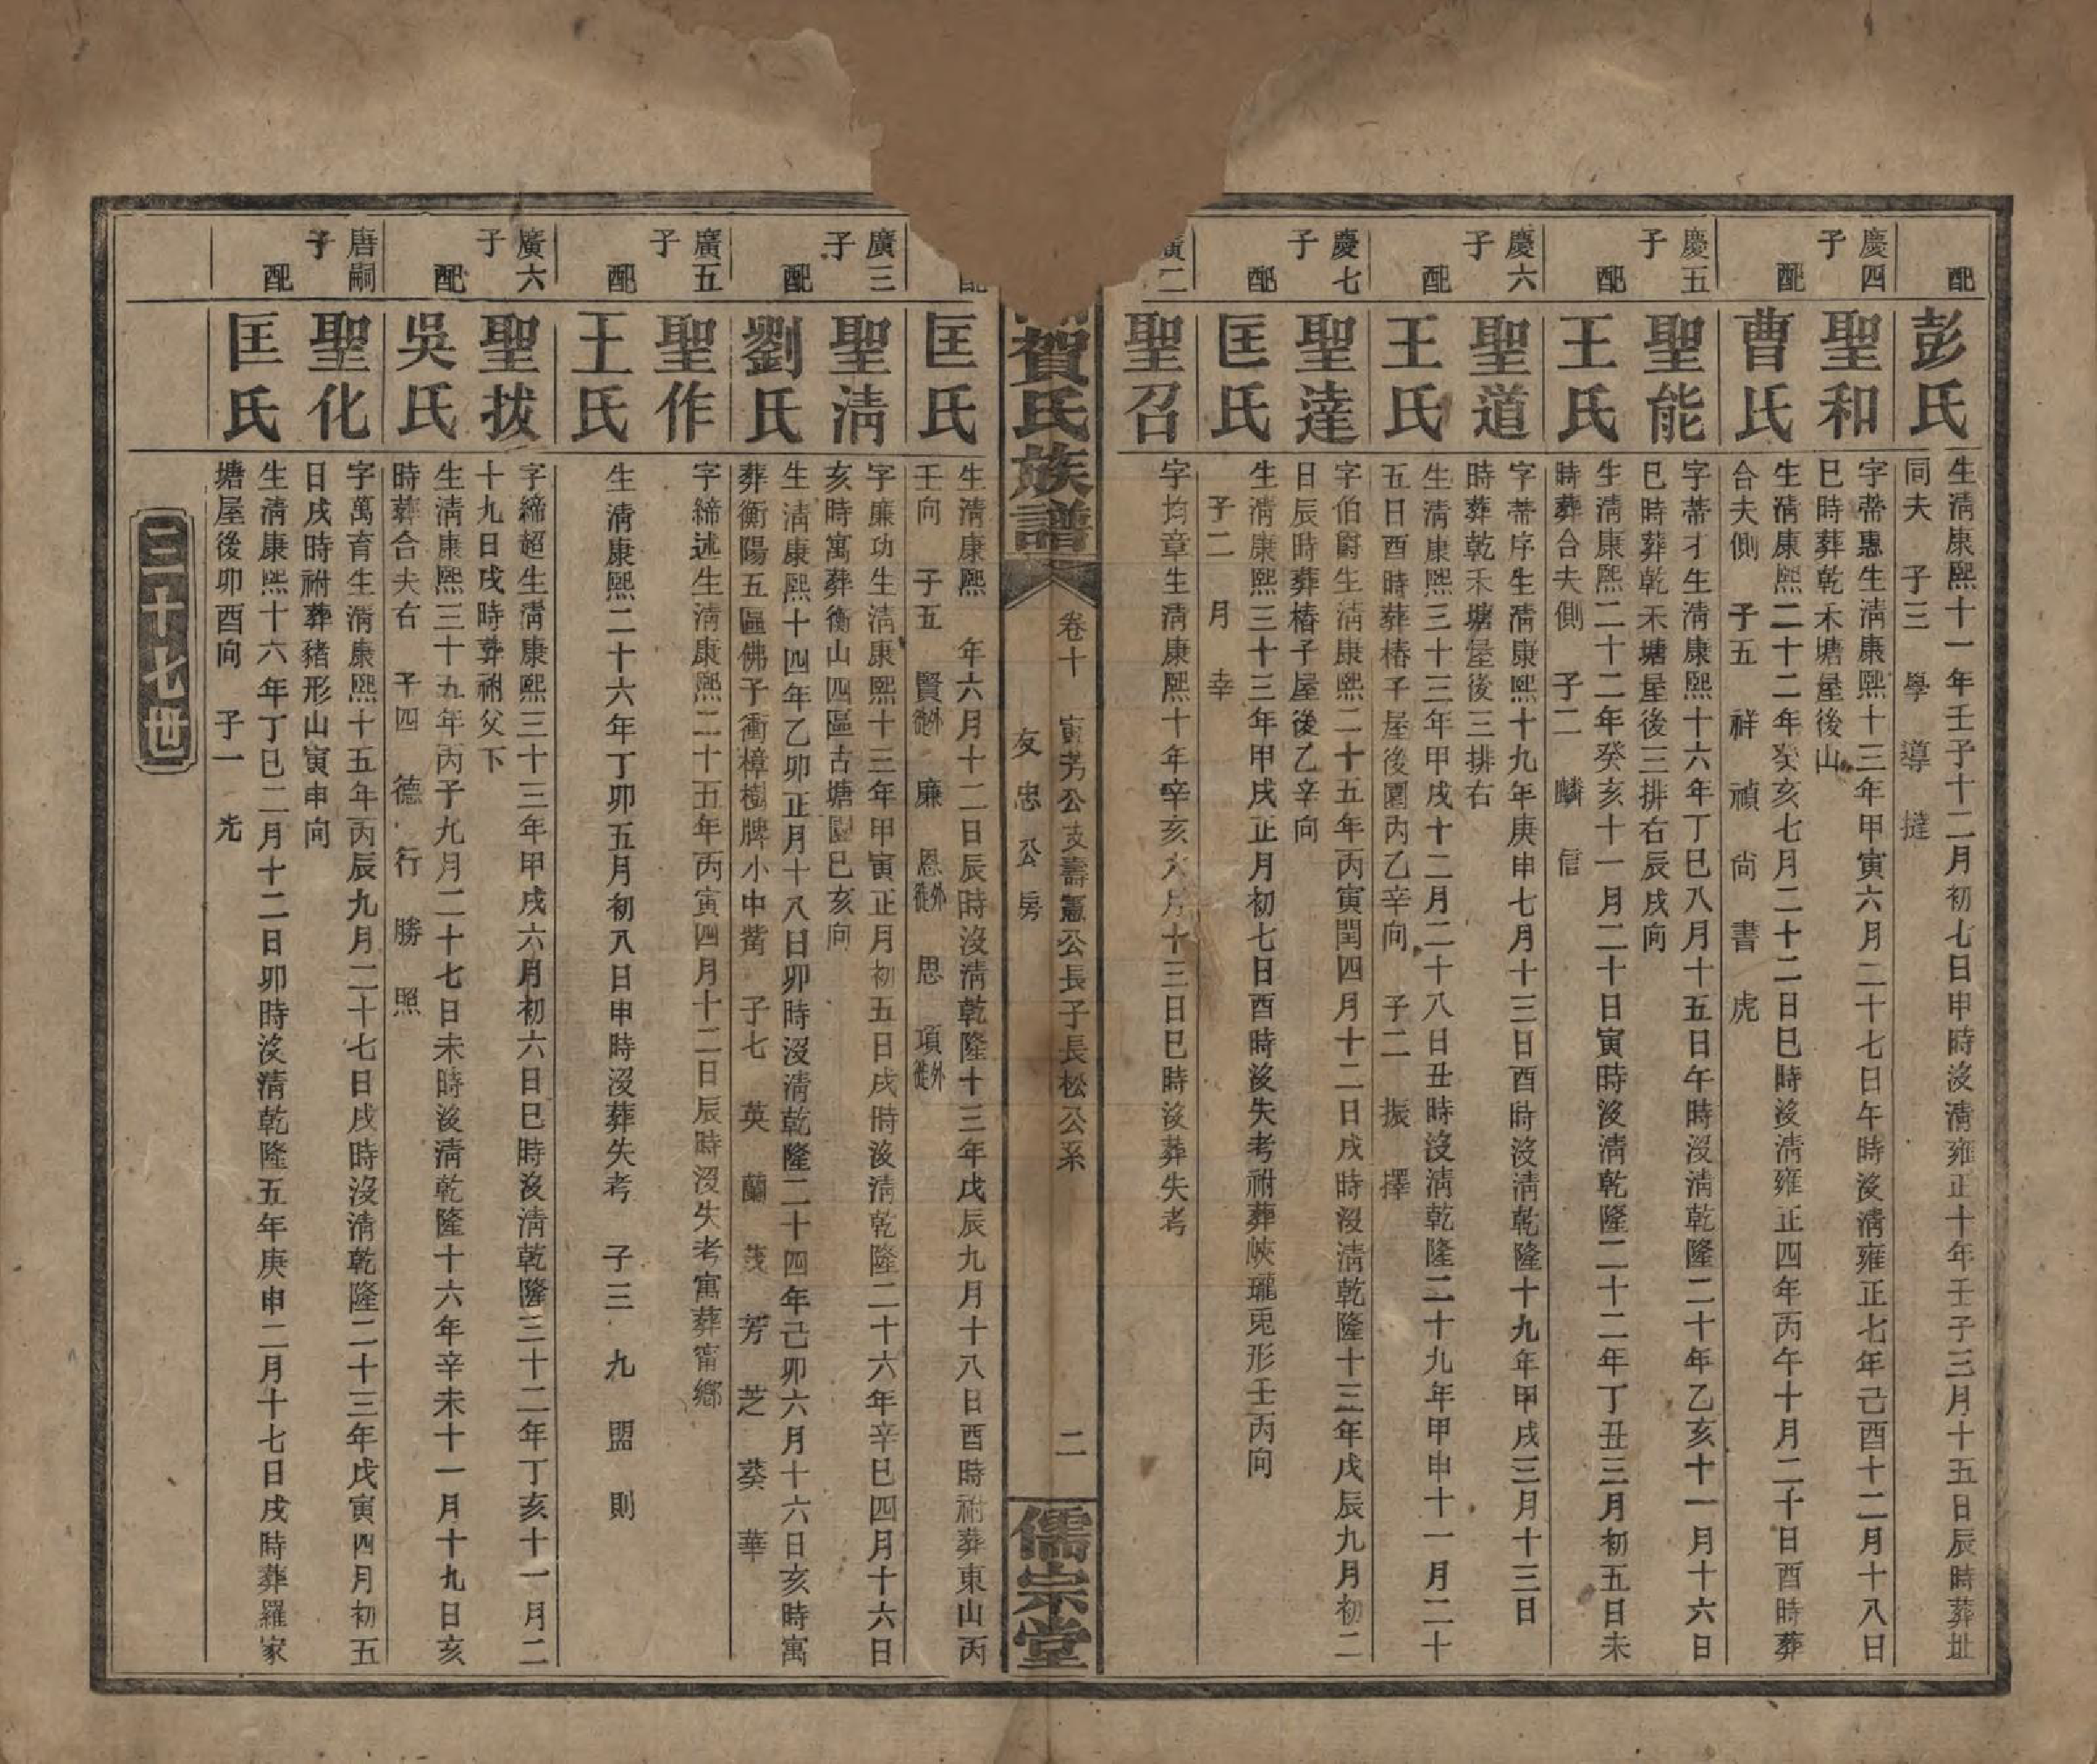 配
彭氏
生淸康熙十一年壬子十二月初七日申時沒淸雍正十年壬子三月十五日辰時葬址
同夫　子三　學　導　撻
慶四
子
聖和
字蒂惠生淸康熙十三年甲寅六月二十七日午時沒淸雍正七年己酉十二月十八日
巳時葬乾禾塘屋後山
配
曹氏
生淸康熙二十二年癸亥七月二十二日巳時沒淸雍正四年丙午十月二十日酉時葬
合夫側　子五　祥　禎　尙　書　虎
慶五
子
聖能
字蒂才生淸康熙十六年丁巳八月十五日午時沒淸乾隆二十年乙亥十一月十六日
巳時葬乾禾塘屋後三排右辰戌向
配
王氏
生淸康熙二十二年癸亥十一月二十日寅時沒淸乾隆二十二年丁丑三月初五日未
時葬合夫側　子二　麟　信
慶六
子
聖道
字蒂序生淸康熙十九年庚申七月十三日酉時沒淸乾隆十九年甲戌三月十三日
時葬乾禾塘屋後三排右
配
王氏
生淸康熙三十三年甲戌十二月二十八日丑時沒淸乾隆二十九年甲申十一月二十
五日酉時葬椿子屋後園內乙辛向　子二　振　擇
慶七
子
聖達
字伯爵生淸康熙二十五年丙寅閏四月十二日戌時沒淸乾隆十三年戊辰九月初二
日辰時葬椿子屋後乙辛向
配
匡氏
生淸康熙三十三年甲戌正月初七日酉時沒失考祔葬峽瓏兎形壬丙向
子二　月　幸
廣二
聖召
字均章生淸康熙十年辛亥六月十三日巳時沒葬失考
賀氏族譜
卷十　寅芳公支壽憲公長子長松公系
友忠公房
二
儒宗堂
配
匡氏
生淸康熙　年六月十二日辰時沒淸乾隆十三年戊辰九月十八日酉時祔葬東山丙
壬向　子五　賢徙外　廉　恩徙外　思　項徙外
廣三
子
聖淸
字廉功生淸康熙十三年甲寅正月初五日戌時沒淸乾隆二十六年辛巳四月十六日
亥時寓葬衡山四區古塘園巳亥向
配
劉氏
生淸康熙十四年乙卯正月十八日卯時沒淸乾隆二十四年己卯六月十六日亥時寓
葬衡陽五區佛子衝樟樹脾小中嘴　子七　英　蘭　茂　芳　芝　葵　華
廣五
子
聖作
字締述生淸康熙二十五年丙寅四月十二日辰時沒失考寓葬甯鄕
配
王氏
生淸康熙二十六年丁卯五月初八日申時沒葬失考　子三　九　盟　則
廣六
子
聖拔
字締超生淸康熙三十三年甲戌六月初六日巳時沒淸乾隆三十二年丁亥十一月二
十九日戌時葬祔父下
配
吳氏
生淸康熙三十五年丙子九月二十七日未時沒淸乾隆十六年辛未十一月十九日亥
時葬合夫右　子四　德　行　勝　照
唐嗣
子
聖化
字萬育生淸康熙十五年丙辰九月二十七日戌時沒淸乾隆二十三年戊寅四月初五
日戌時祔葬豬形山寅申向
配
匡氏
生淸康熙十六年丁巳二月十二日卯時沒淸乾隆五年庚申二月十七日戌時葬羅家
塘屋後卯酉向　子一　光
三十七世